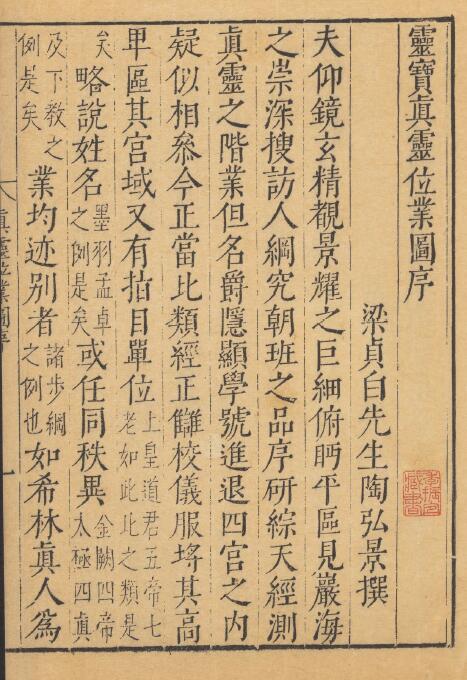 靈寶眞靈位業圖序
梁貞白先生陶弘景撰
夫仰鏡玄精覩景耀之巨細俯眄平區見巖海
之崇深搜訪人綱究朝班之品序研綜天經測
眞靈之階業但名爵隱顯學號進退四宮之内
疑似相叅今正當比類經正讎校儀服埓其高
卑區其宮域又有指目單位上皇道君五帝七老如此比之類是
矣略說姓名墨羽孟卓之例是矣或任同秩異金闕四帝太極四眞
及下敎之例是矣業均迹别者諸步綱之例也如希林眞人爲
眞靈位業圖序